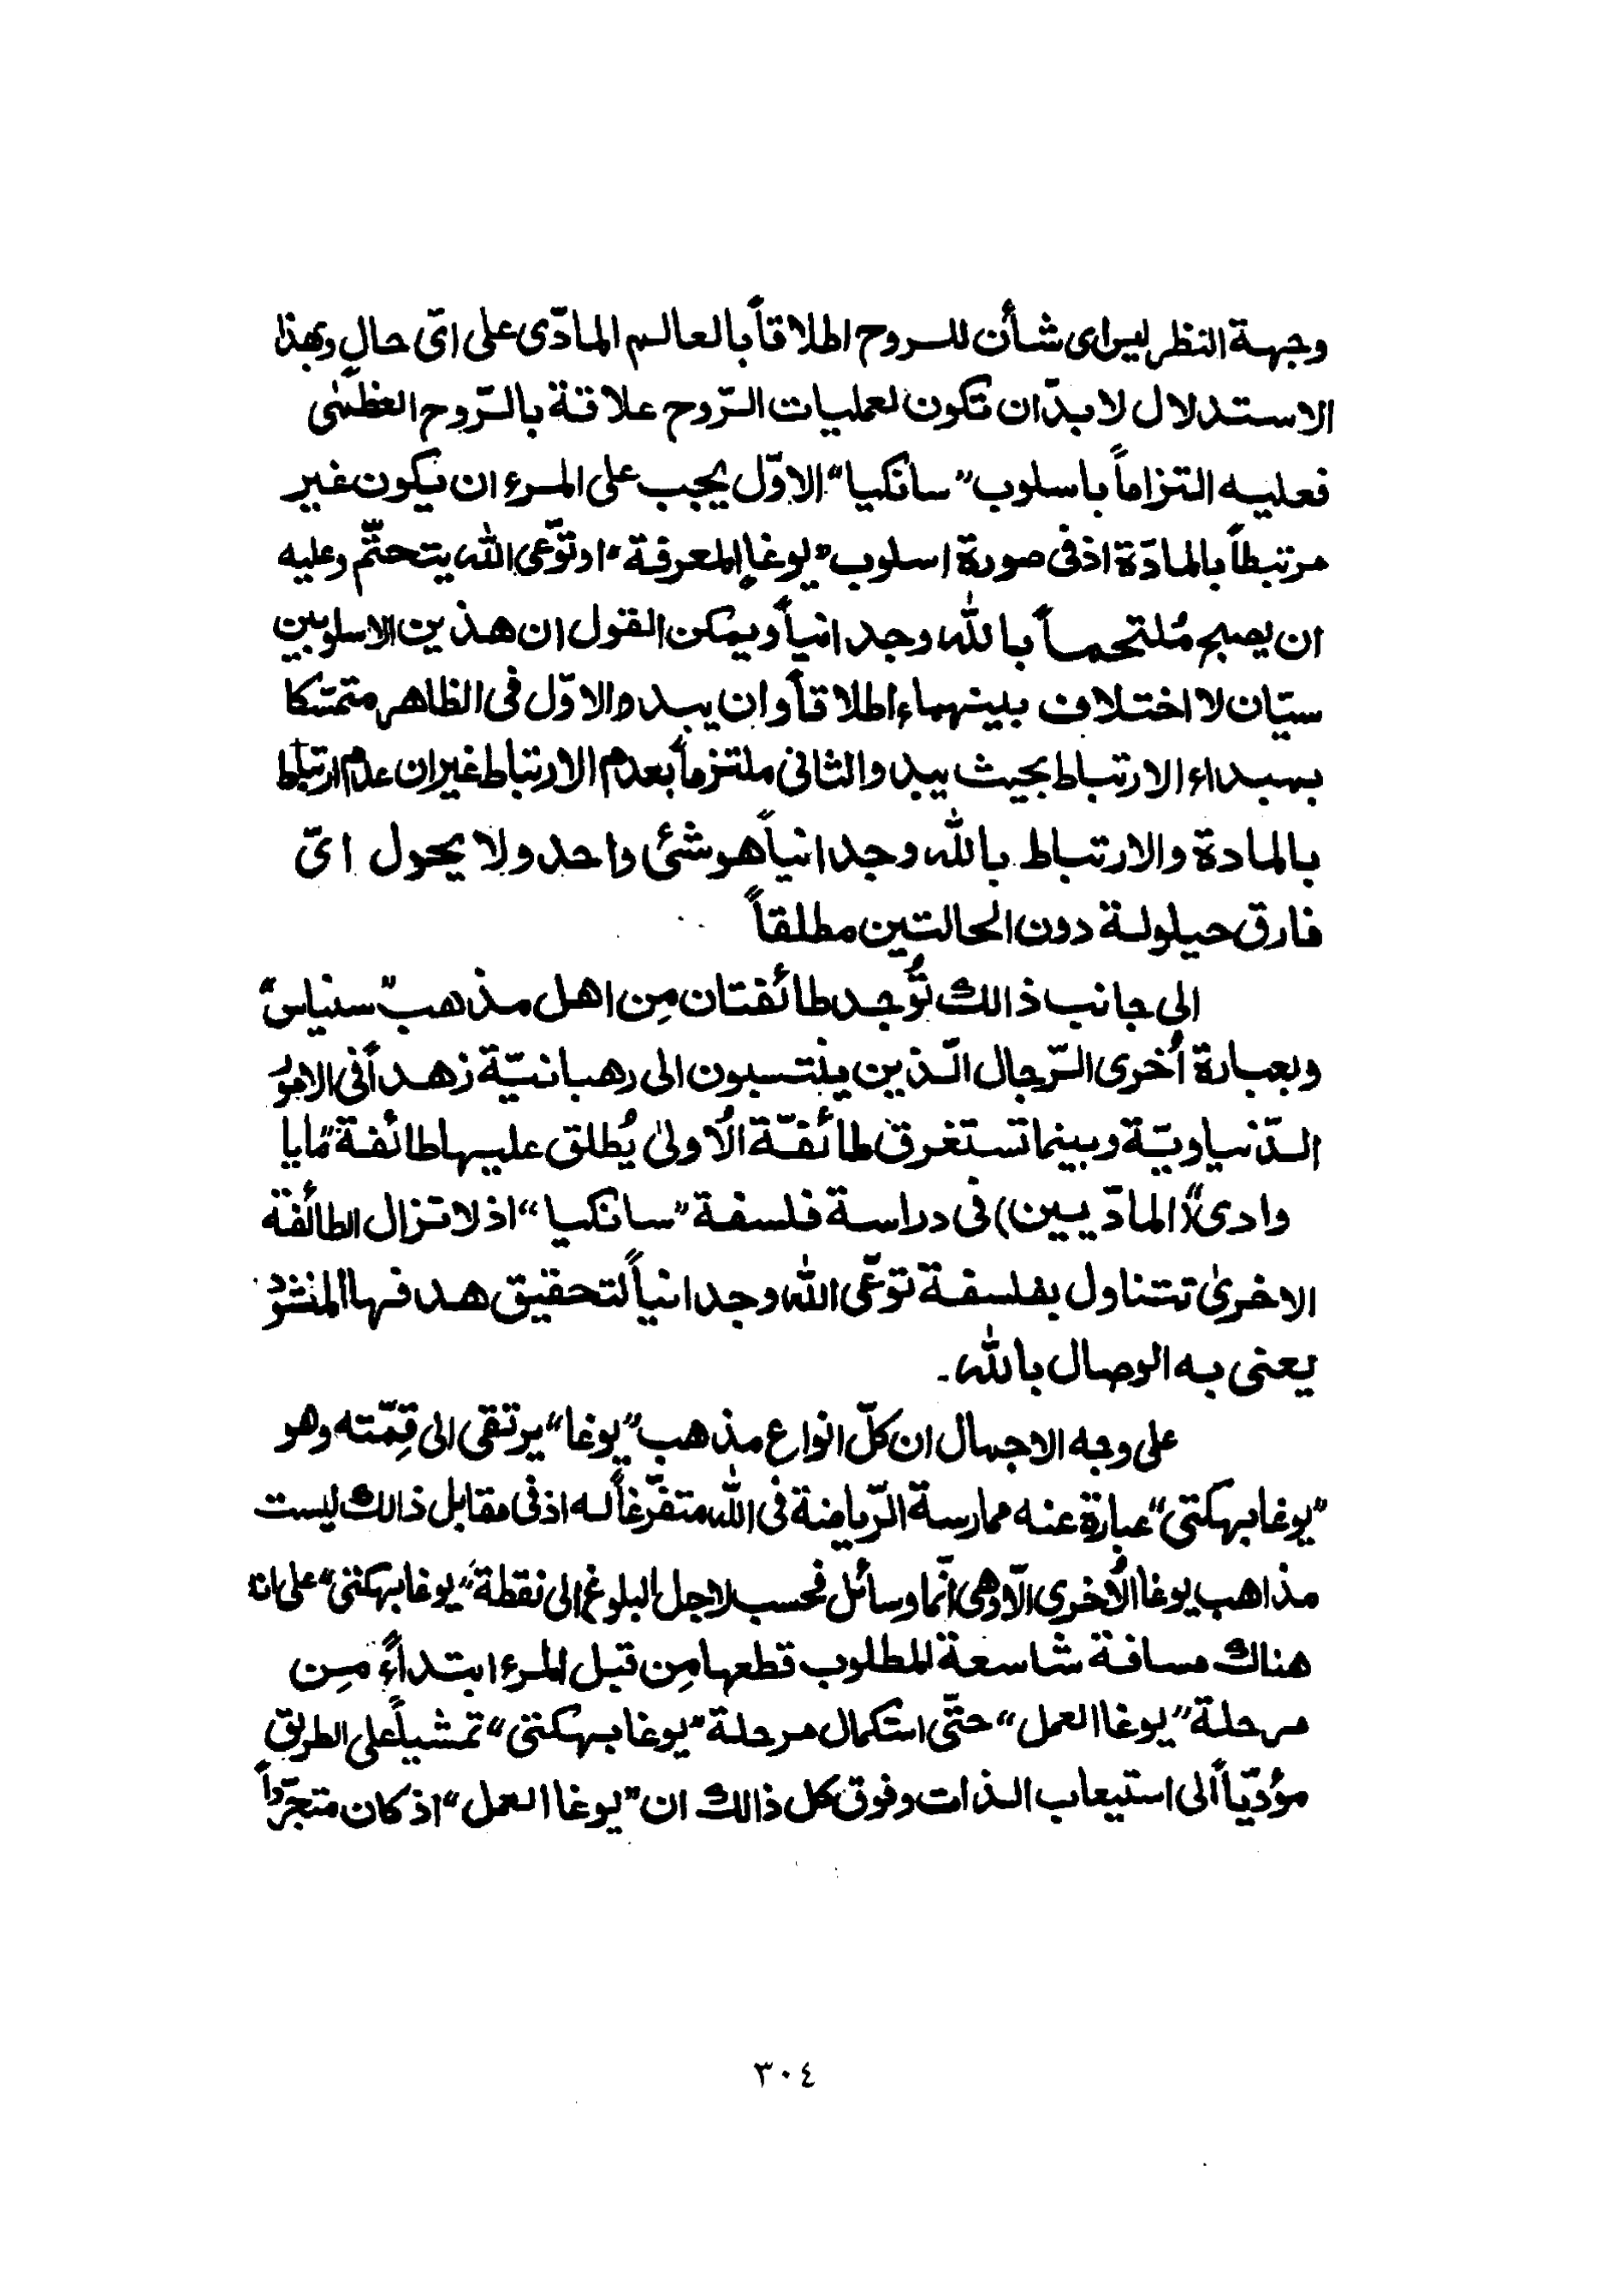 وجهة النظر ليس اى شأن للروح اطلاقاً بالعالم المادّى على اىّ حال وبهذا
الاستدلال لا بدّ ان تكون لعمليات الرّوح علاقة بالرّوح العظمٰى
فعليه التزاماً باسلوب "سانكيا" الاوّل يجب على المرء ان يكون غير
مرتبطاً بالمادّة اذ فى صورة اسلوب "يوغا المعرفة" او توّعى الله يتحتّم وعليه
ان يصبح مُلتحماً بالله وجدانياً ويمكن القول ان هذين الاسلوبين
سيّان لا اختلاف بينهماء اطلاقاً وان يبدو الاوّل فى الظاهر متمسّكا
بمبداء الارتباط بحيث يبدو الثانى ملتزماً بعدم الارتباط غير ان عدم ارتباط
بالمادة والارتباط بالله وجدانياً هو شئ واحد ولا يحول اىّ
فارق حيلولة دون الحالتين مطلقاً
الى جانب ذالك تُوجد طائفتان مِن اهل مذهب "سنياس"
وبعبارة اُخرى الرّجال الّذين ينتسبون الى رهبانيّة زهداً فى الامور
الدّنياويّة وبينما تستغرق طائفّة الاُولىٰ يُطلق عليها طائفة "مايا
وادى" (المادّيين) فى دراسة فلسفة "سانكيا" اذ لا تزال الطائفة
الاخرىٰ تتناول بفلسفة توعّى الله وجدانياً لتحقيق هدفها المنشود
يعنى به الوصال بالله۔
على وجه الاجمال ان كلّ انواع مذهب "يوغا" يرتقى الى قِمّته وهو
"يوغا بهكتى" عبارة عنه ممارسة الرّياضة فى الله متفرّغاً له اذ فى مقابل ذالك ليست
مذاهب يوغا الاُخرى الّا وهى انّما وسائل فحسب لاجل البلوغ الى نقطة "يوغا بهكتى" على ان
هناك مسافة شاسعة المطلوب قطعها مِن قبل المرء ابتداءً مِن
مرحلة "يوغا العمل" حتّى استكمال مرحلة "يوغا بهكتى" تمشياً على الطريق
مؤدّياً الى استيعاب الذات وفوق كل ذالك ان "يوغا العمل" اذ كان متجرّداً
٣٠٤